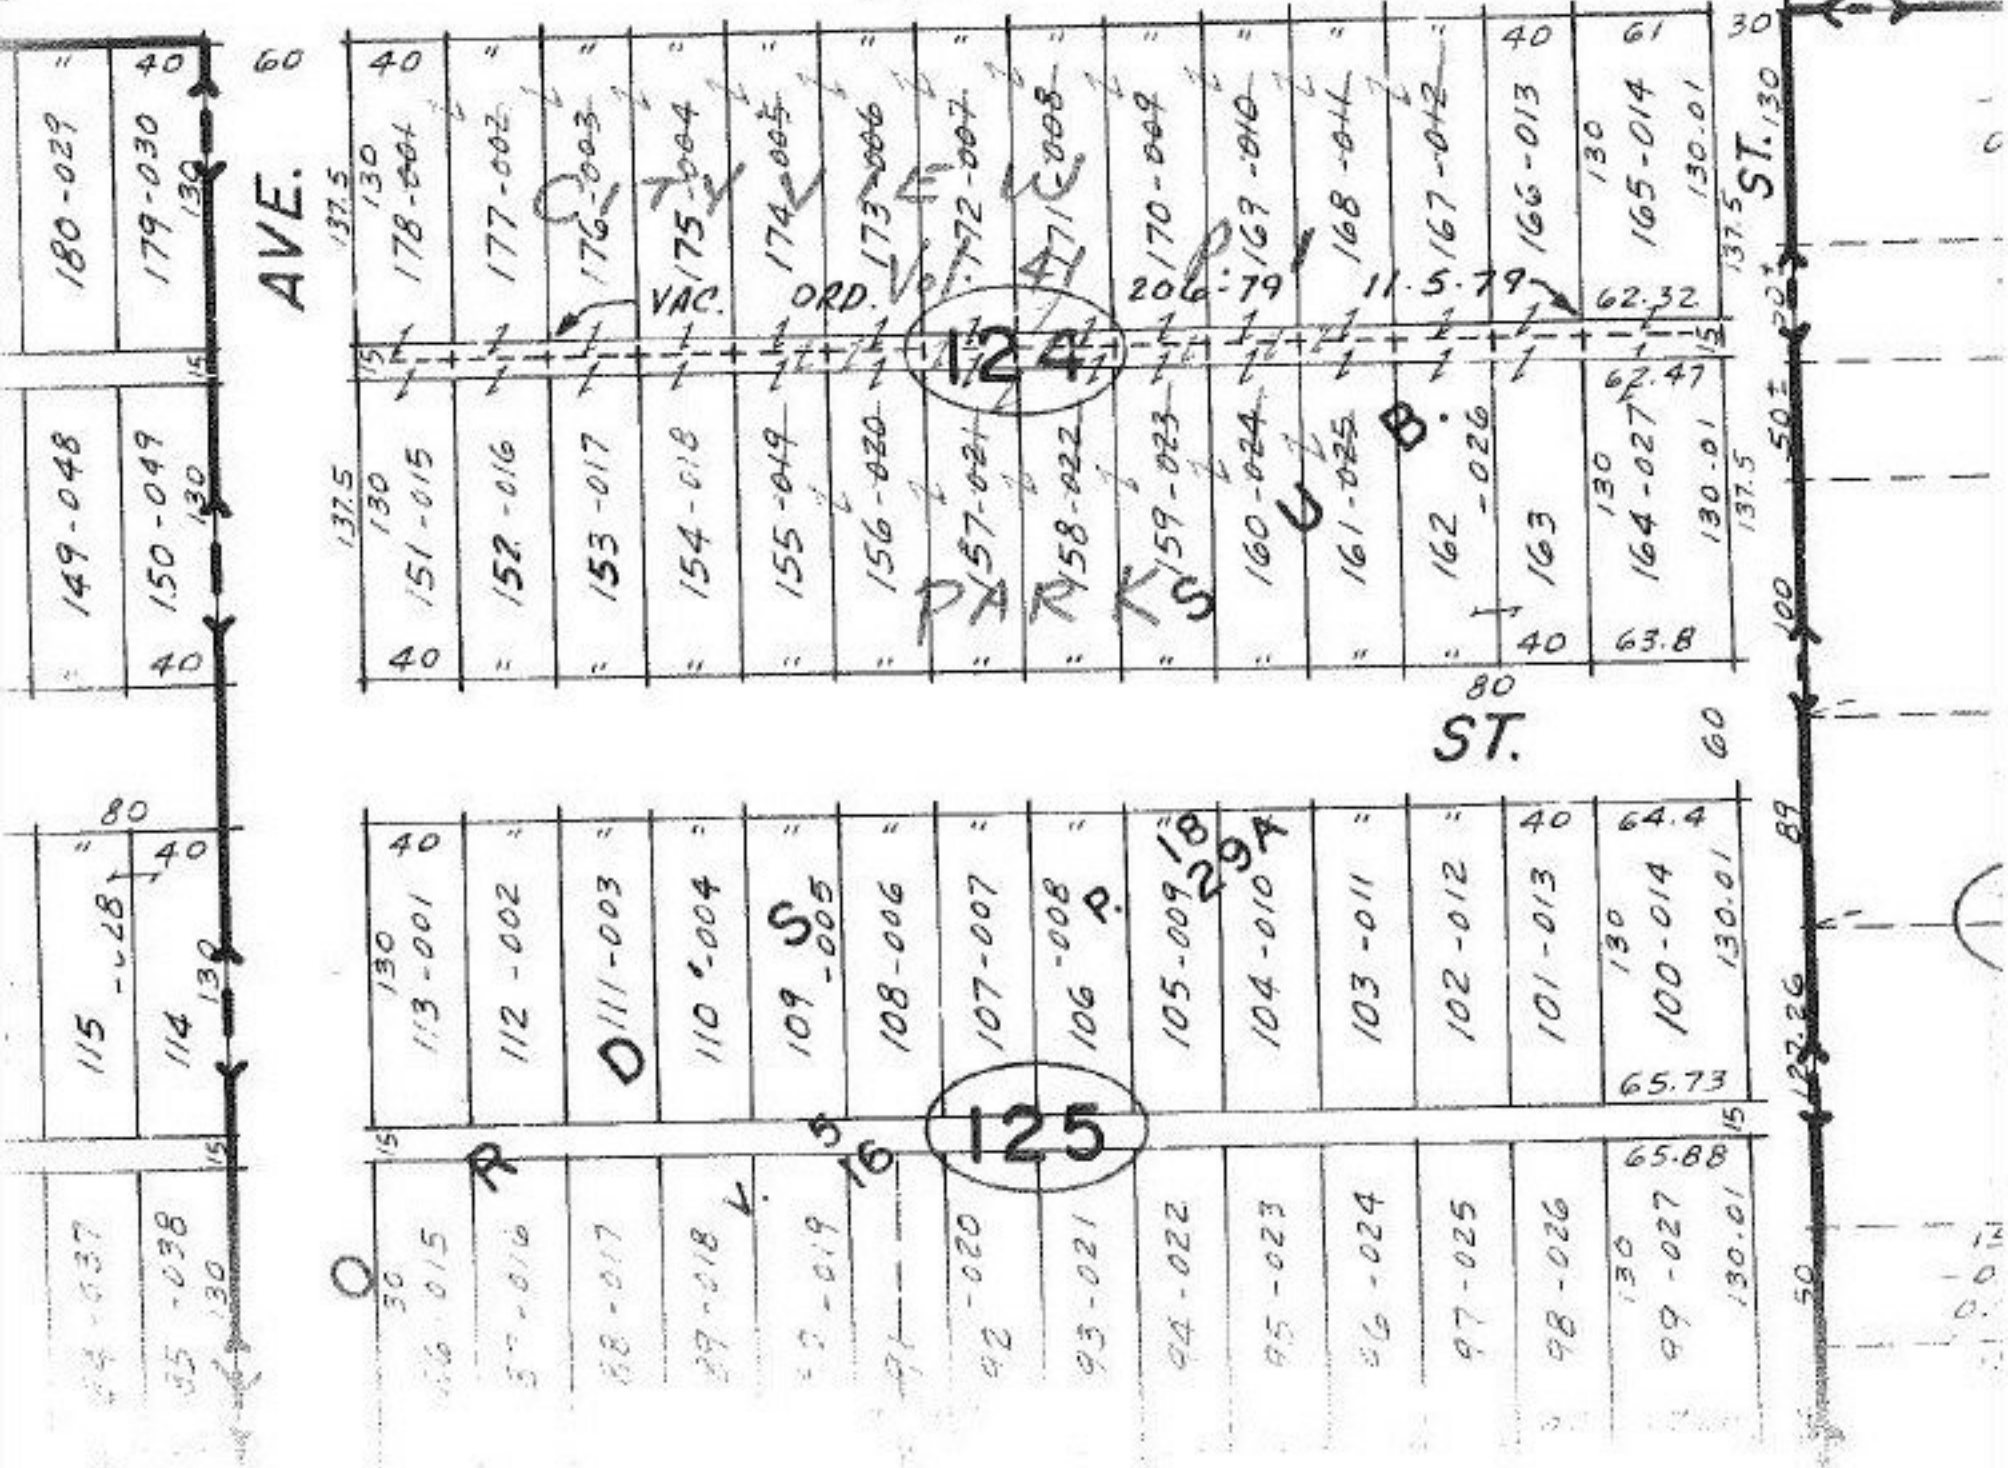 " 40 60 40 " " " " " " " " " " " 40 61 30
180-029 179-030 130 AVE. 137.5 130 178-001 177-002 176-003 175-004 174-005 173-006 172-007 171-008 170-009 169-010 168-011 167-012 166-013 130 165-014 130.01 137.5 ST. 130
CITY VIEW
Vol. 41 P. 1
VAC. ORD. 206-79 11.5.79 62.32 20±
15 15 124 15
62.47 50±
149-048 150-049 130 137.5 130 151-015 152-016 153-017 154-018 155-019 156-020 157-021 158-022 159-023 160-024 161-025 162-026 163 130 164-027 130.01 137.5
PARK SUB.
40 40 " " " " " " " " " " " 40 63.8 100
80
ST. 60
80
" 40 40 " " " " " " " " " " " 40 64.4 89
115 -028 114 130 130 113-001 112-002 111-003 110-004 109-005 108-006 107-007 106-008 105-009 104-010 103-011 102-012 101-013 130 100-014 130.01
18
29A
65.73 127.26
15 15 125 15
65.88
O R D S
V. 5 P.
16
-037 -038 130 30 -015 -016 -017 -018 -019 91 92-020 93-021 94-022 95-023 96-024 97-025 98-026 130 99-027 130.01 50